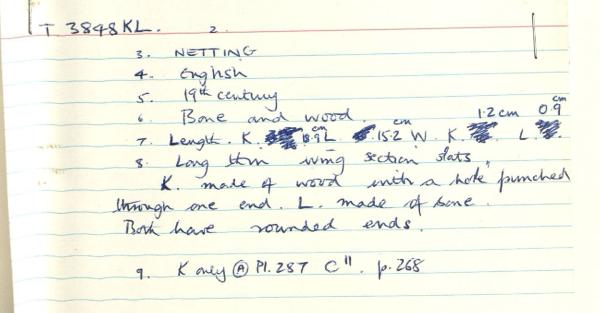 T 3848KL. 2.
3. NETTING
4. English
5. 19th century
6. Bone and wood.
7. Length. K. 18.9cm L. 15.2cm W. K. 1.2cm L. 0.9cm
8. Long thin wing section slats,
K. made of wood with a hole punched
through one end. L. made of bone.
Both have rounded ends.
9. K only Ⓐ Pl. 287 C11. p.268